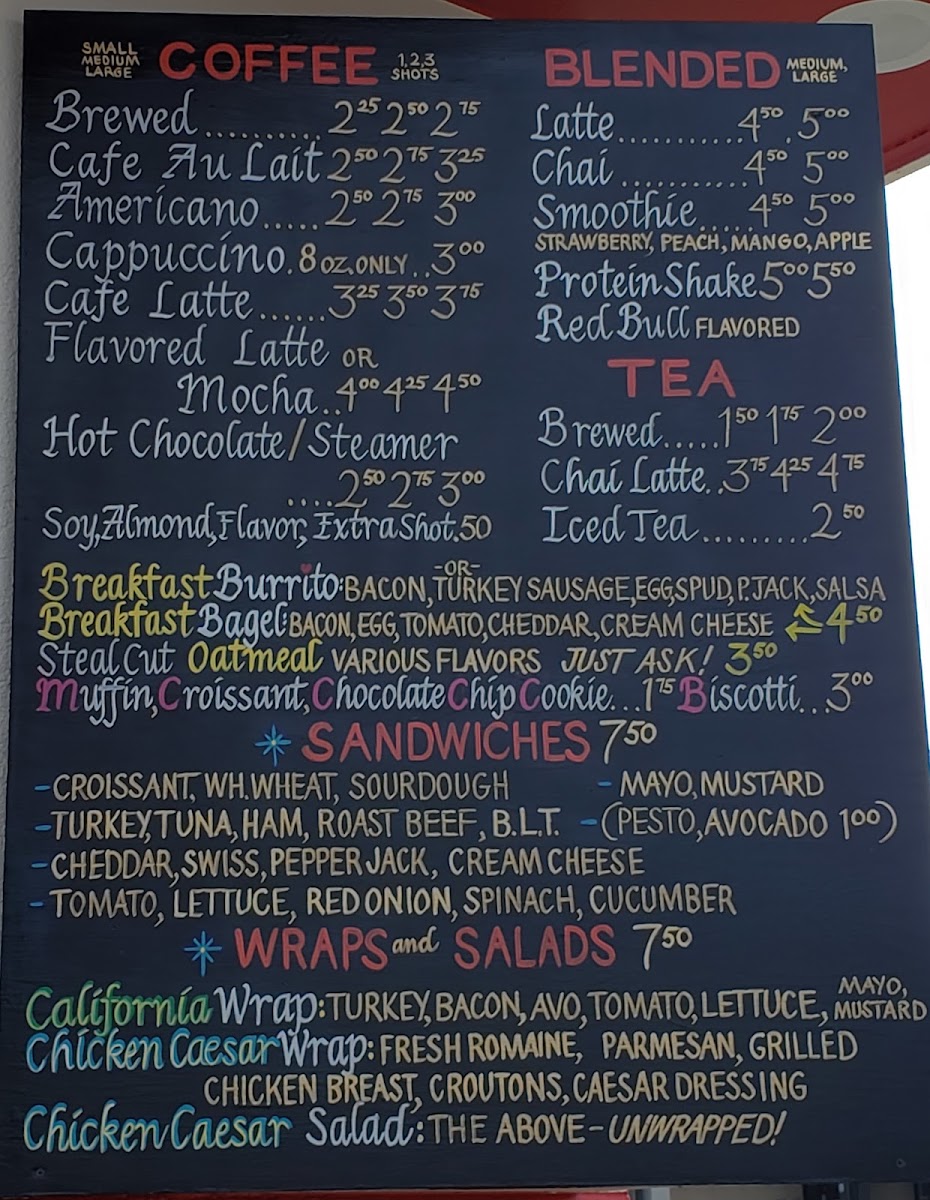 SMALL
MEDIUM
LARGE
COFFEE
1,2,3
SHOTS
Brewed..........2.25 2.50 2.75
Cafe Au Lait 2.50 2.75 3.25
Americano.....2.50 2.75 3.00
Cappuccino.8 OZ. ONLY..3.00
Cafe Latte......3.25 3.50 3.75
Flavored Latte OR
Mocha..4.00 4.25 4.50
Hot Chocolate/Steamer
....2.50 2.75 3.00
Soy, Almond, Flavor, Extra Shot.50
BLENDED
MEDIUM,
LARGE
Latte...........4.50 5.00
Chai...........4.50 5.00
Smoothie.....4.50 5.00
STRAWBERRY, PEACH, MANGO, APPLE
Protein Shake 5.00 5.50
Red Bull FLAVORED
TEA
Brewed.....1.50 1.75 2.00
Chai Latte..3.75 4.25 4.75
Iced Tea.........2.50
-OR-
Breakfast Burrito: BACON, TURKEY SAUSAGE, EGG, SPUD, P. JACK, SALSA
Breakfast Bagel: BACON, EGG, TOMATO, CHEDDAR, CREAM CHEESE 4.50
Steal Cut Oatmeal VARIOUS FLAVORS JUST ASK! 3.50
Muffin, Croissant, Chocolate Chip Cookie...1.75 Biscotti...3.00
SANDWICHES 7.50
-CROISSANT, WH. WHEAT, SOURDOUGH - MAYO, MUSTARD
-TURKEY, TUNA, HAM, ROAST BEEF, B.L.T. -(PESTO, AVOCADO 1.00)
-CHEDDAR, SWISS, PEPPER JACK, CREAM CHEESE
- TOMATO, LETTUCE, RED ONION, SPINACH, CUCUMBER
WRAPS and SALADS 7.50
California Wrap: TURKEY, BACON, AVO, TOMATO, LETTUCE, MAYO, MUSTARD
Chicken Caesar Wrap: FRESH ROMAINE, PARMESAN, GRILLED
CHICKEN BREAST, CROUTONS, CAESAR DRESSING
Chicken Caesar Salad: THE ABOVE - UNWRAPPED!